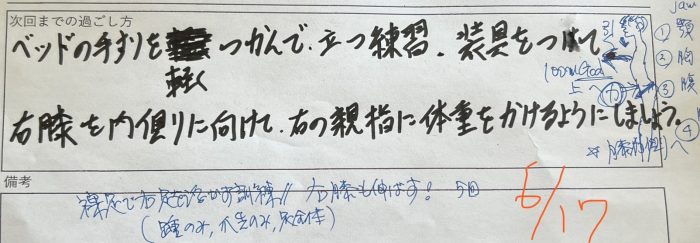 次回までの過ごし方
ベッドの手すりを つかんで、立つ練習、装具をつけて
軽く
右膝を内側りに向けて、右の親指に体重をかけるようにしましょう。
jaw
① 顎
② 胸
③ 腹
④
上へ
備考
裸足で右足を 訓練 右膝も伸ばす! 5回
(踵のみ, 爪先のみ, 足全体)
6/17